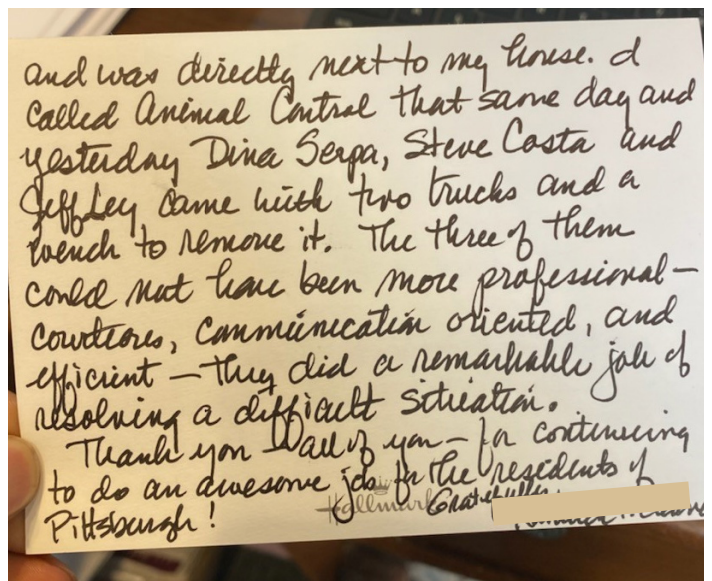 and was directly next to my house. I
called Animal Control that same day and
yesterday Dina Serpa, Steve Costa and
Jeff Ley came with two trucks and a
wench to remove it. The three of them
could not have been more professional –
courteous, communication oriented, and
efficient – they did a remarkable job of
resolving a difficult situation.
Thank you – all of you – for continuing
to do an awesome job for the residents of
Pittsburgh!
Hallmark
Gratefully